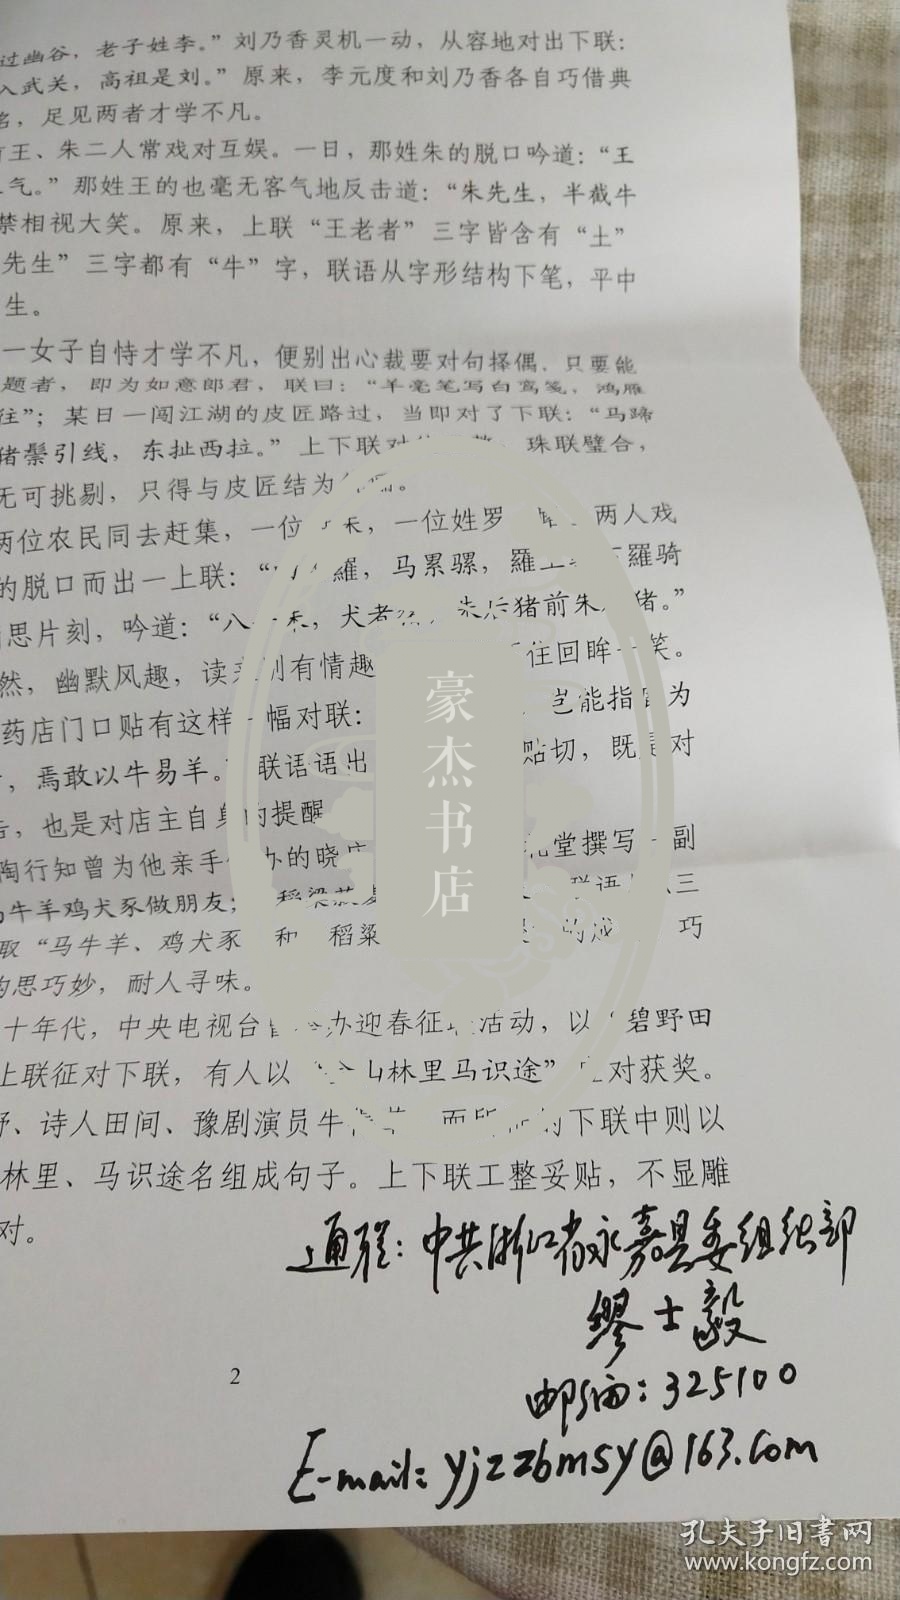 过幽谷，老子姓李。”刘乃香灵机一动，从容地对出下联：
入武关，高祖是刘。”原来，李元度和刘乃香各自巧借典
名，足见两者才学不凡。
王、朱二人常戏对互娱。一日，那姓朱的脱口吟道：“王
气。”那姓王的也毫无客气地反击道：“朱先生，半截牛
禁相视大笑。原来，上联“王老者”三字皆含有“土”
先生”三字都有“牛”字，联语从字形结构下笔，平中
生。
一女子自恃才学不凡，便别出心裁要对句择偶，只要能
题者，即为如意郎君，联曰：“羊毫笔写白鸾笺，鸿雁
往”；某日一闯江湖的皮匠路过，当即对了下联：“马蹄
猪鬃引线，东扯西拉。”上下联对 珠联璧合，
无可挑剔，只得与皮匠结为
两位农民同去赶集，一位 一位姓罗 两人戏
的脱口而出一上联：“ 羅，马累骡，羅 羅骑
思片刻，吟道：“八 犬者 猪前朱 猪。”
然，幽默风趣，读来别有情趣 住回眸一笑。
药店门口贴有这样一幅对联： 岂能指鹿为
，焉敢以牛易羊。”联语语出 贴切，既是对
告，也是对店主自身的提醒
陶行知曾为他亲手 办的晓庄 礼堂撰写一副
马牛羊鸡犬豕做朋友； 稻粱菽 联语 三
取“马牛羊、鸡犬豕 和 稻粱 的成 巧
构思巧妙，耐人寻味。
十年代，中央电视台曾举办迎春征联活动，以“碧野田
上联征对下联，有人以“ 山林里马识途” 对获奖。
野、诗人田间、豫剧演员牛 而所 的下联中则以
林里、马识途名组成句子。上下联工整妥贴，不显雕
对。
通程：中共浙江省永嘉县委组织部
缪士毅
邮编：325100
E-mail：yjzzbmsy@163.com
2
豪杰书店
孔夫子旧书网
www.kongfz.com